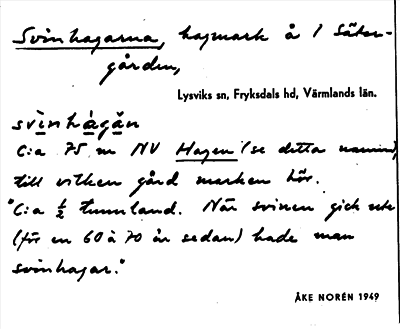 Svinhagarna, hagmark å 1 Säter-
gården,
Lysviks sn, Fryksdals hd, Värmlands län.
svìnhàgăn
C:a 75 m NV Hagen (se detta namn),
till vilken gård marken hör.
"C:a ½ tunnland. När svinen gick ute
(för en 60 à 70 år sedan) hade man
svinhagar."
ÅKE NORÉN 1949